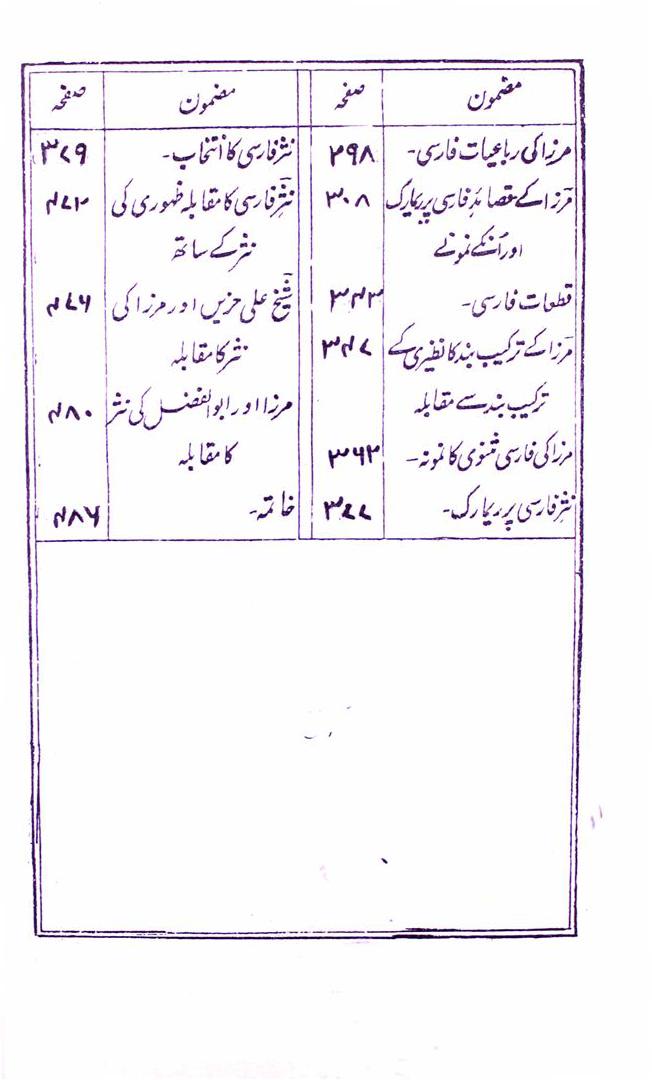 مضمون صفحہ
مرزا کی رباعیات فارسی۔ ۲۹۸
مرزا کے قصائدِ فارسی پر ریمارک ۳۰۸
اور اُنکے نمونے
قطعات فارسی۔ ۳۴۳
مرزا کے ترکیب بند کا نظیری کے ۳۴۷
ترکیب بند سے مقابلہ
مرزا کی فارسی مثنوی کا نمونہ۔ ۳۶۲
نثرِ فارسی پر ریمارک۔ ۳۷۷
مضمون صفحہ
نثر فارسی کا انتخاب۔ ۳۷۹
نثرِ فارسی کا مقابلہ ظہوری کی ۴۷۲
نثر کے ساتھ
شیخ علی حزیں اور مرزا کی ۴۷۶
نثر کا مقابلہ
مرزا اور ابوالفضل کی نثر ۴۸۰
کا مقابلہ
خاتمہ۔ ۴۸۶